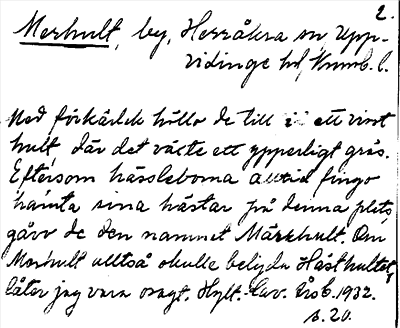 2.
Morhult, by, Herråkra sn Upp-
vidinge hd, Kronb. l.
Med förkärlek höllo de till i ett visst
hult, där det växte ett ypperligt gräs.
Eftersom hässleborna alltid fingo
hämta sina hästar på denna plats
gåvo de den namnet Märrhult. Om
Morhult alltså skulle betyda Hästhultet,
låter jag vara osagt. Hylt.-Cav. Årsb. 1932.
s. 20.